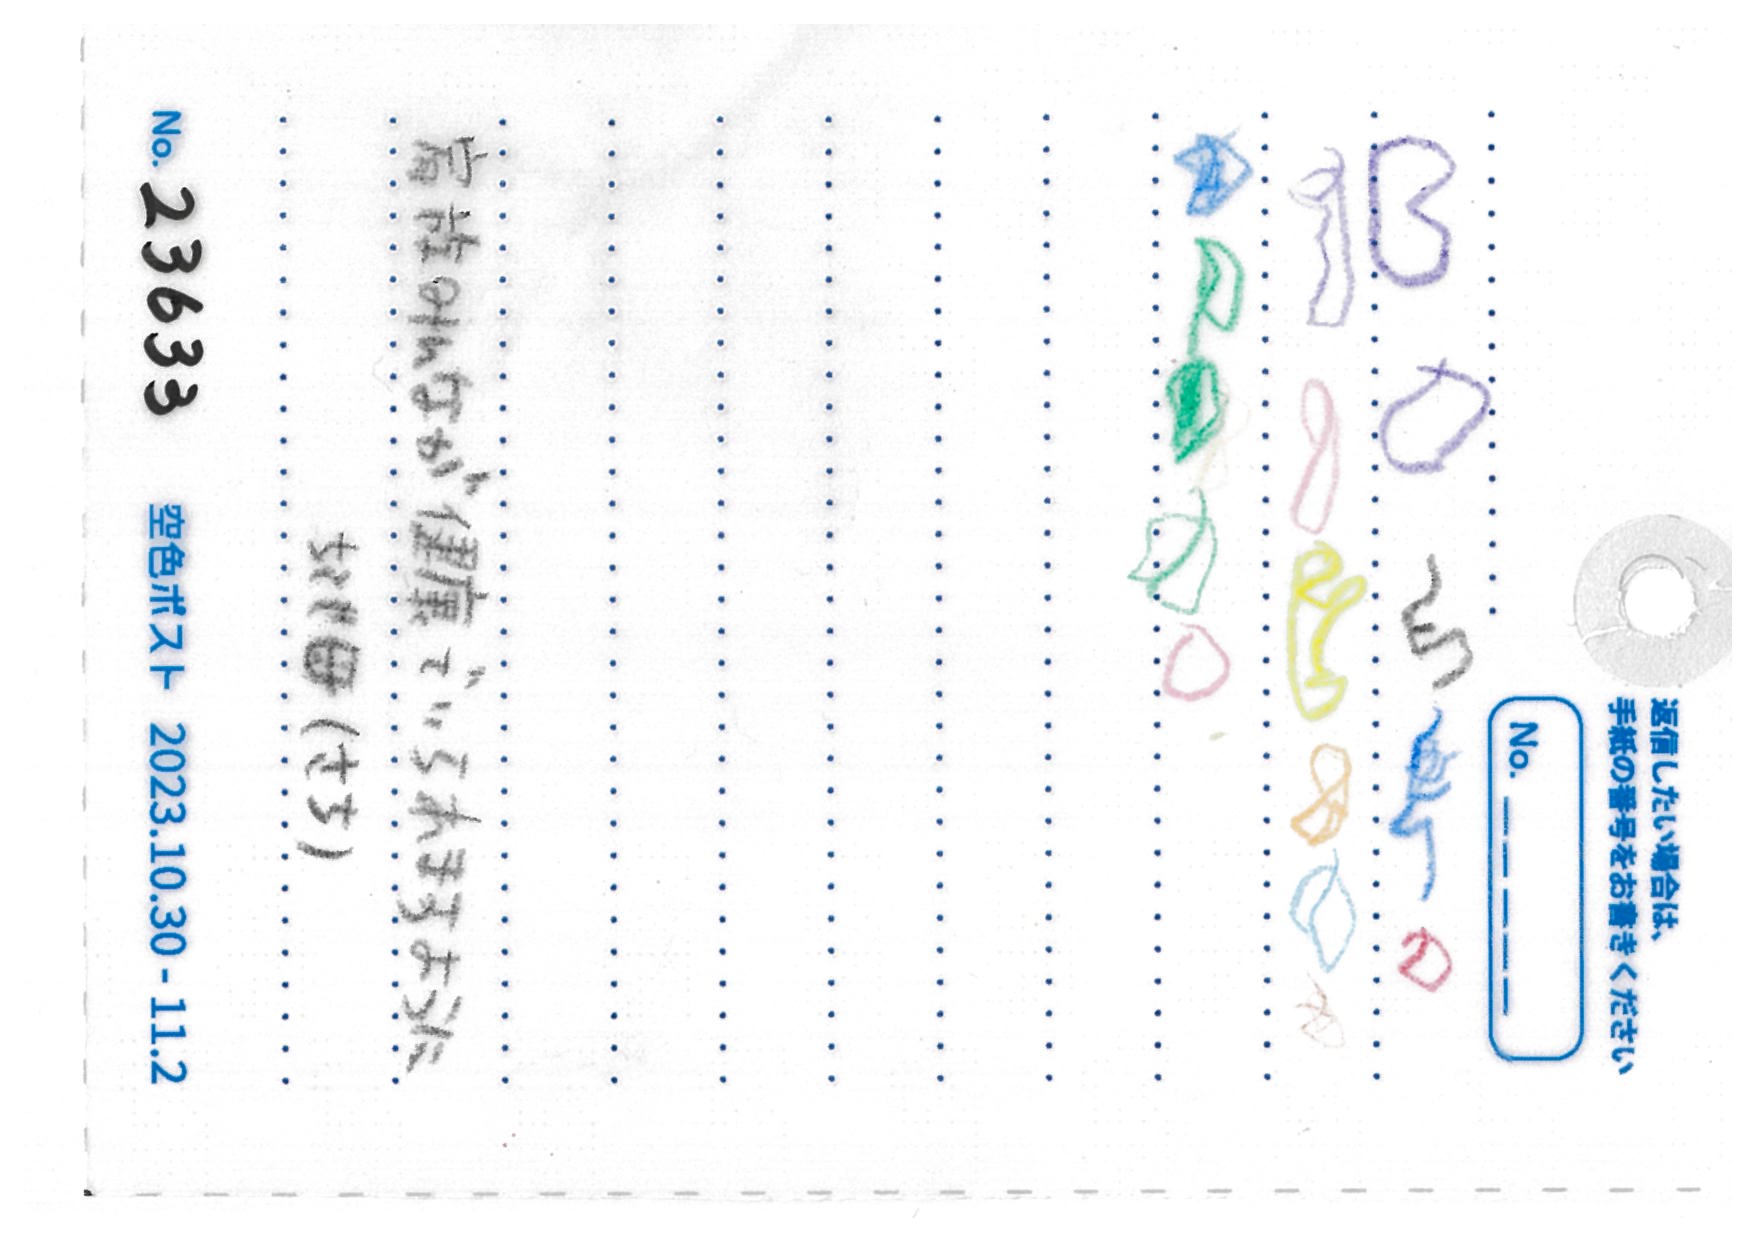 返信したい場合は、
手紙の番号をお書きください
No. _ _ _ _ _
家族みんなが健康でいられますように
母(さち)
No. 23633 空色ポスト 2023.10.30 - 11.2